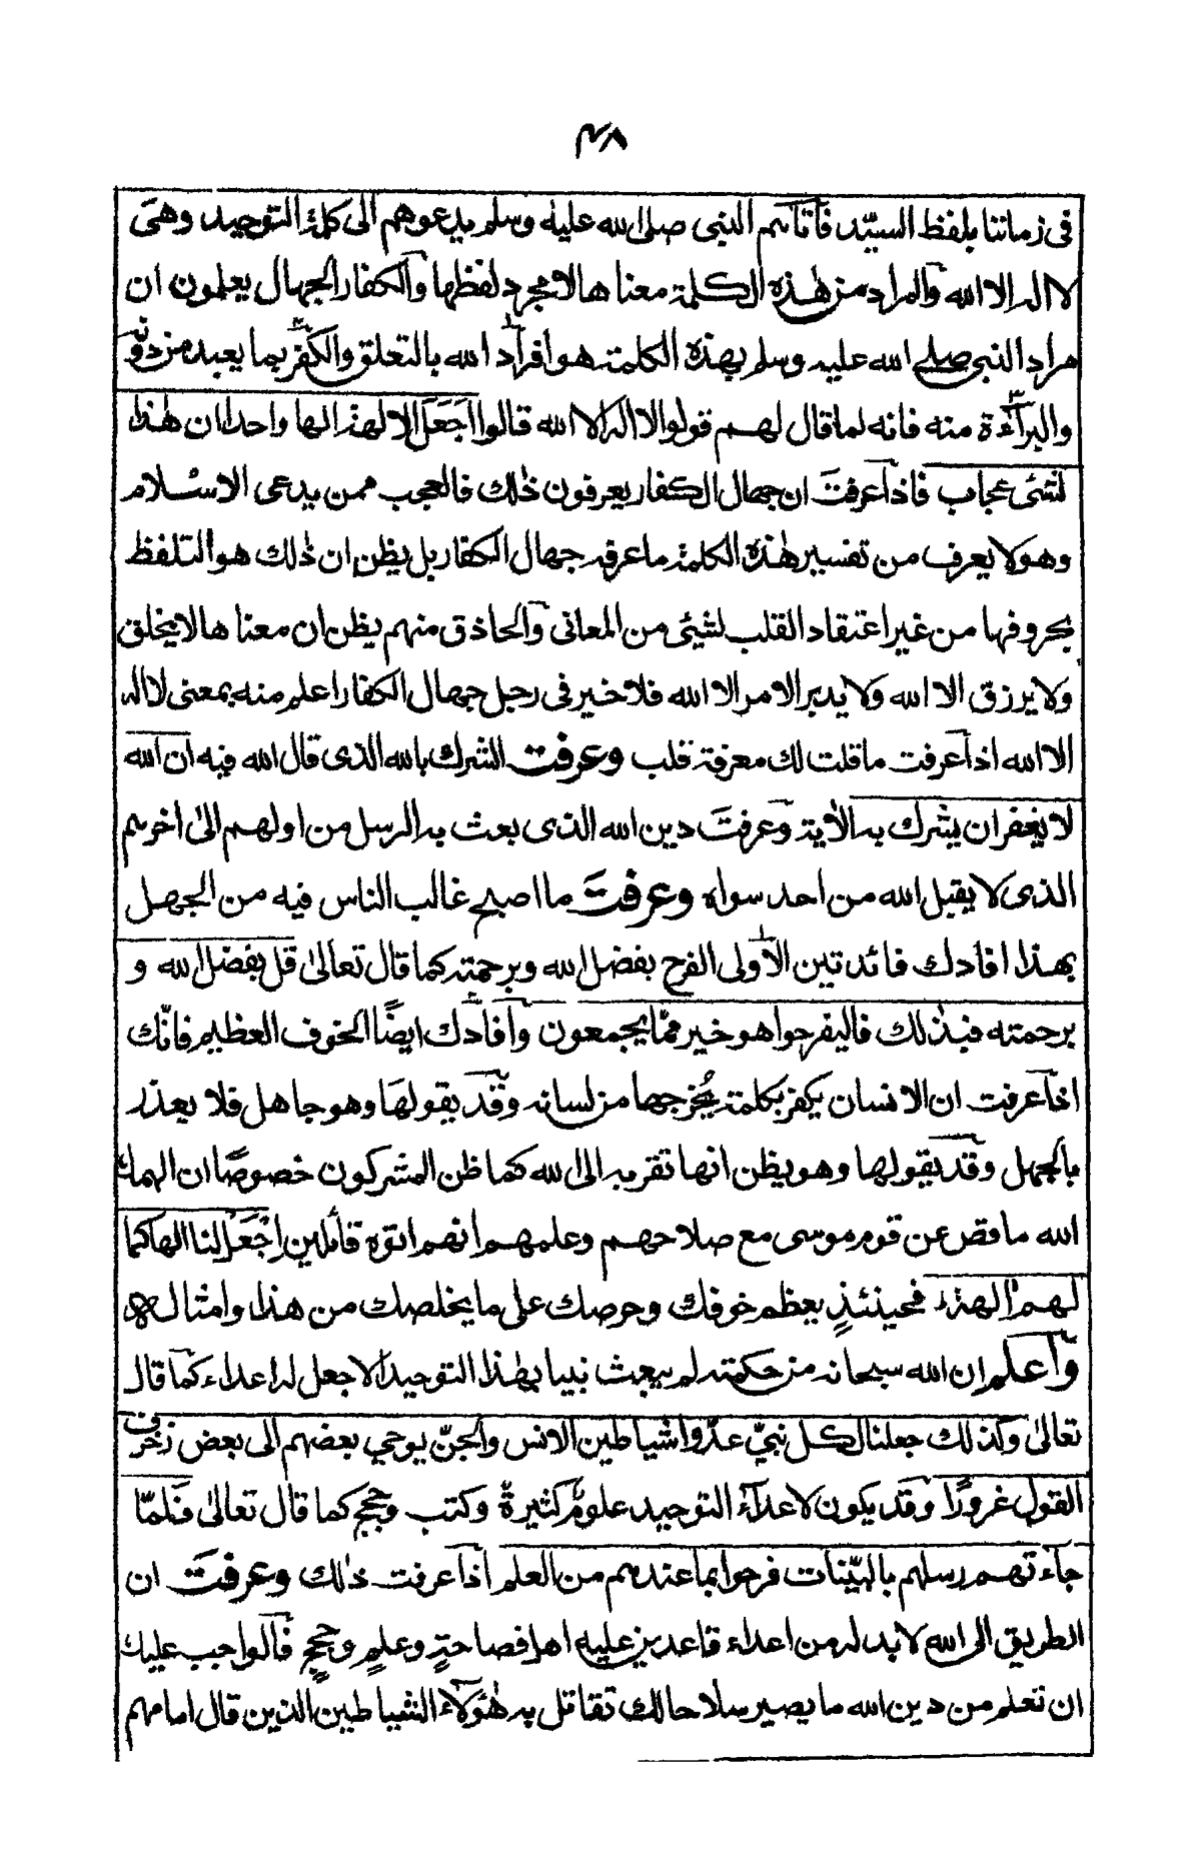 ٣٨
فى زماننا بلفظ السيّد فأتاهم النبى صلى الله عليه وسلم يدعوهم الى كلمة التوحيد وهى
لا اله الا الله والمراد من هٰذه الكلمة معناها لا مجرد لفظها والكفار الجهال يعلمون ان
مراد النبى صلى الله عليه وسلم بهذه الكلمة هو افراد الله بالتعلق والكفر بما يعبد من دونه
والبرآءة منه فانه لما قال لهم قولوا لا اله الا الله قالوا اجَعَلَ الالهة الها واحدا ان هٰذا
لشئ عجاب فاذا عرفتَ ان جهال الكفار يعرفون ذٰلك فالعجب ممن يدعى الاسلام
وهو لا يعرف من تفسير هٰذه الكلمة ما عرفه جهال الكفار بل يظن ان ذٰلك هو التلفظ
بحروفها من غير اعتقاد القلب لشئ من المعانى والحاذق منهم يظن ان معناها لا يخلق
ولا يرزق الا الله ولا يدبر الامر الا الله فلا خير فى رجل جهال الكفار اعلم منه بمعنى لا اله
الا الله اذا عرفت ما قلت لك معرفة قلب وعرفت الشرك بالله الذى قال الله فيه ان الله
لا يغفر ان يشرك به الأية وعرفتَ دين الله الذى بعث به الرسل من اولهم الىٰ اٰخرهم
الذى لا يقبل الله من احد سواه وعرفتَ ما اصبح غالب الناس فيه من الجهل
بهذا افادك فائدتين الاولى الفرح بفضل الله وبرحمته كما قال تعالىٰ قل بفضل الله و
برحمته فبذٰلك فاليفرحوا هو خير ممّا يجمعون وافادك ايضًا الخوف العظيم فانّك
اذا عرفت ان الانسان يكفر بكلمة يُخرجها من لسانه وقد يقولها وهو جاهل فلا يعذر
بالجهل وقد يقولها وهو يظن انها تقربه الى الله كما ظن المشركون خصوصًا ان الهمك
الله ما قص عن قوم موسى مع صلاحهم وعلمهم انهم اتوه قائلين اجْعَلْ لنا الها كما
لهم اٰلهة فحينئذٍ يعظم خوفك وحرصك على ما يخلصك من هذا وامثاله
واعلم ان الله سبحانه من حكمته لم يبعث نبيا بهٰذا التوحيد الا جعل له اعداء كما قال
تعالىٰ وكذٰلك جعلنا لكل نبيّ عدوّا شياطين الانس والجنّ يوحي بعضهم الى بعض زخرف
القول غرورًا وقد يكون لاعدآء التوحيد علومٌ كثيرةٌ وكتب وحجج كما قال تعالىٰ فَلمّا
جاءتهم رسلهم بالبيّنات فرحوا بما عندهم من العلم اذا عرفت ذٰلك وعرفتَ ان
الطريق الى الله لا بد له من اعداء قاعدين عليه اهل فصاحةٍ وعلمٍ وحججٍ فالواجب عليك
ان تعلم من دين الله ما يصير سلاحا لك تقاتل به هٰؤلآء الشياطين الذين قال امامهم